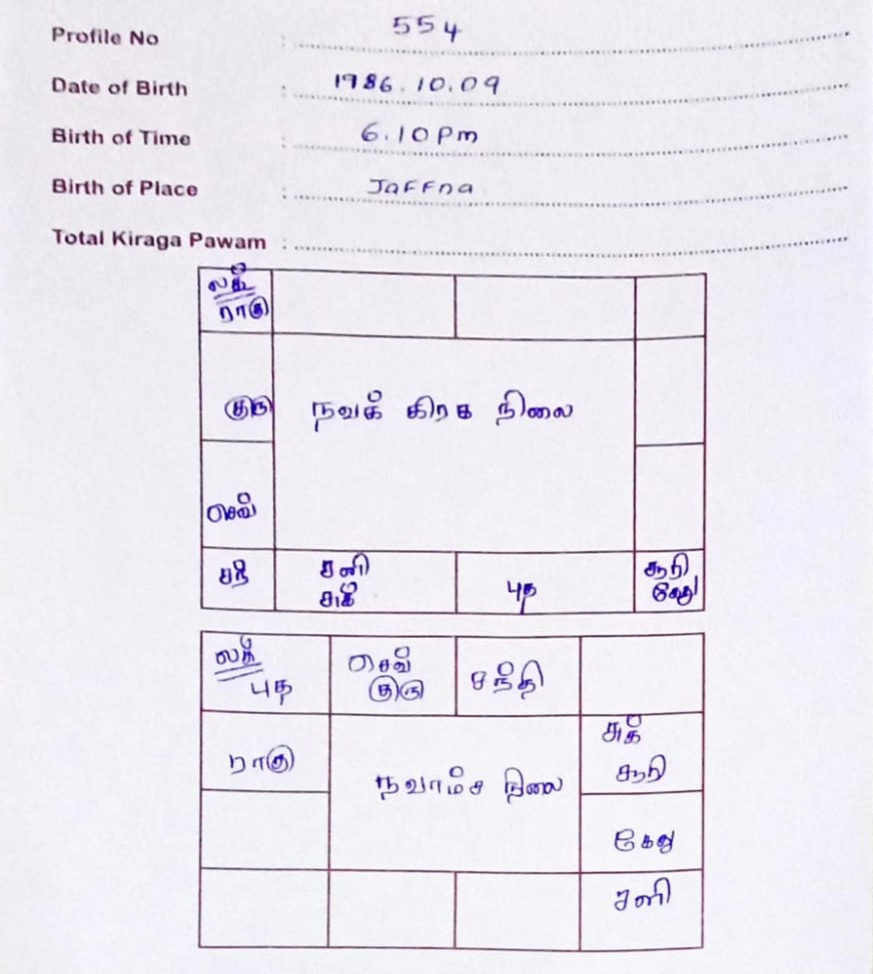 Profile No : 554
Date of Birth : 1986.10.09
Birth of Time : 6.10 Pm
Birth of Place : Jaffna
Total Kiraga Pawam :
லக்
ராகு
குரு
நவக் கிரக நிலை
செவ்
சந்
சனி
சுக்
புத
சூரி
கேது
லக்
புத
செவ்
குரு
சந்தி
ராகு
நவாம்ச நிலை
சுக்
சூரி
கேது
சனி